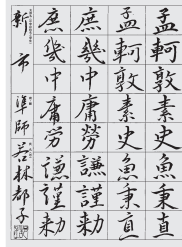 孟軻敦素史魚秉直
孟軻敦素史魚秉直
庶幾中庸勞謙謹勅
庶幾中庸労謙謹勅
新市 準師 若林都子